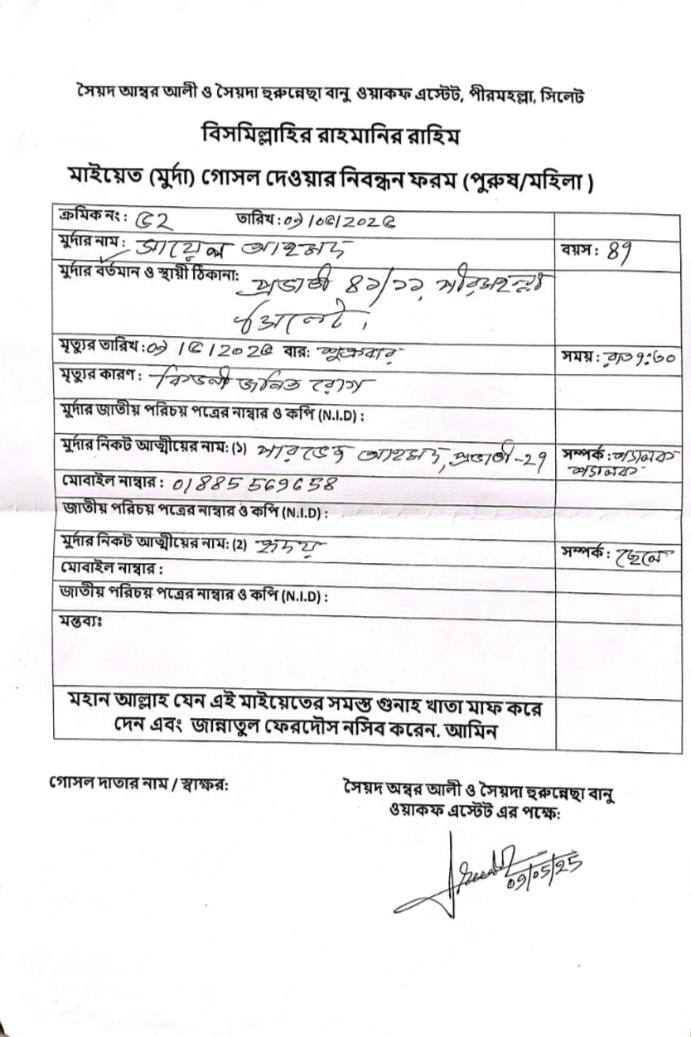 সৈয়দ আম্বর আলী ও সৈয়দা হুরুন্নেছা বানু ওয়াকফ এস্টেট, পীরমহল্লা, সিলেট
বিসমিল্লাহির রাহমানির রাহিম
মাইয়েত (মুর্দা) গোসল দেওয়ার নিবন্ধন ফরম (পুরুষ/মহিলা )
ক্রমিক নং: ৫২ তারিখ: ০৯/০৫/২০২৫
মুর্দার নাম: আহমদ বয়স: ৪৭
মুর্দার বর্তমান ও স্থায়ী ঠিকানা: প্রভাতী ৪১/১১, পীরমহল্লা
সিলেট।
মৃত্যুর তারিখ: ০৯/৫/২০২৫ বার: শুক্রবার সময়: রাত
মৃত্যুর কারণ: কিডনী জনিত রোগ
মুর্দার জাতীয় পরিচয় পত্রের নাম্বার ও কপি (N.I.D) :
মুর্দার নিকট আত্মীয়ের নাম: (১) পারভেজ আহমদ, প্রভাতী-২৭ সম্পর্ক: শ্যালক
শ্যালক
মোবাইল নাম্বার : 01885569658
জাতীয় পরিচয় পত্রের নাম্বার ও কপি (N.I.D) :
মুর্দার নিকট আত্মীয়ের নাম: (2) হৃদয় সম্পর্ক: ছেলে
মোবাইল নাম্বার :
জাতীয় পরিচয় পত্রের নাম্বার ও কপি (N.I.D) :
মন্তব্যঃ
মহান আল্লাহ যেন এই মাইয়েতের সমস্ত গুনাহ খাতা মাফ করে
দেন এবং জান্নাতুল ফেরদৌস নসিব করেন. আমিন
গোসল দাতার নাম / স্বাক্ষর:
সৈয়দ অম্বর আলী ও সৈয়দা হুরুন্নেছা বানু
ওয়াকফ এস্টেট এর পক্ষে:
09/05/25